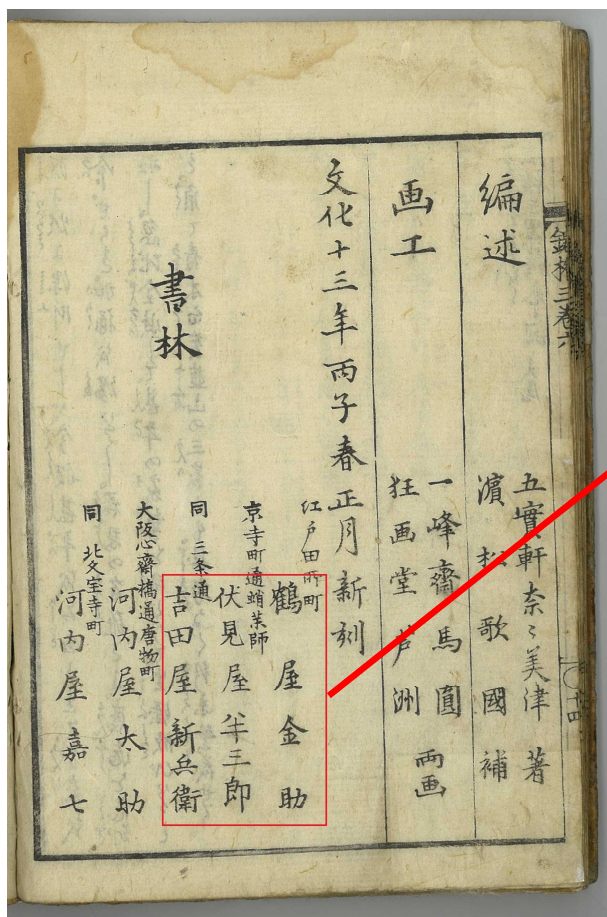 編述
五實軒奈〻美津著
濵松歌國補
画工
一峰齋馬圓
狂画堂芦洲
両画
文化十三年丙子春正月新刻
書林
江戸田所町
鶴屋金助
京寺町通蛸薬師
伏見屋半三郎
同三条通
吉田屋新兵衛
大阪心齋橋通唐物町
河内屋太助
同北久宝寺町
河内屋嘉七